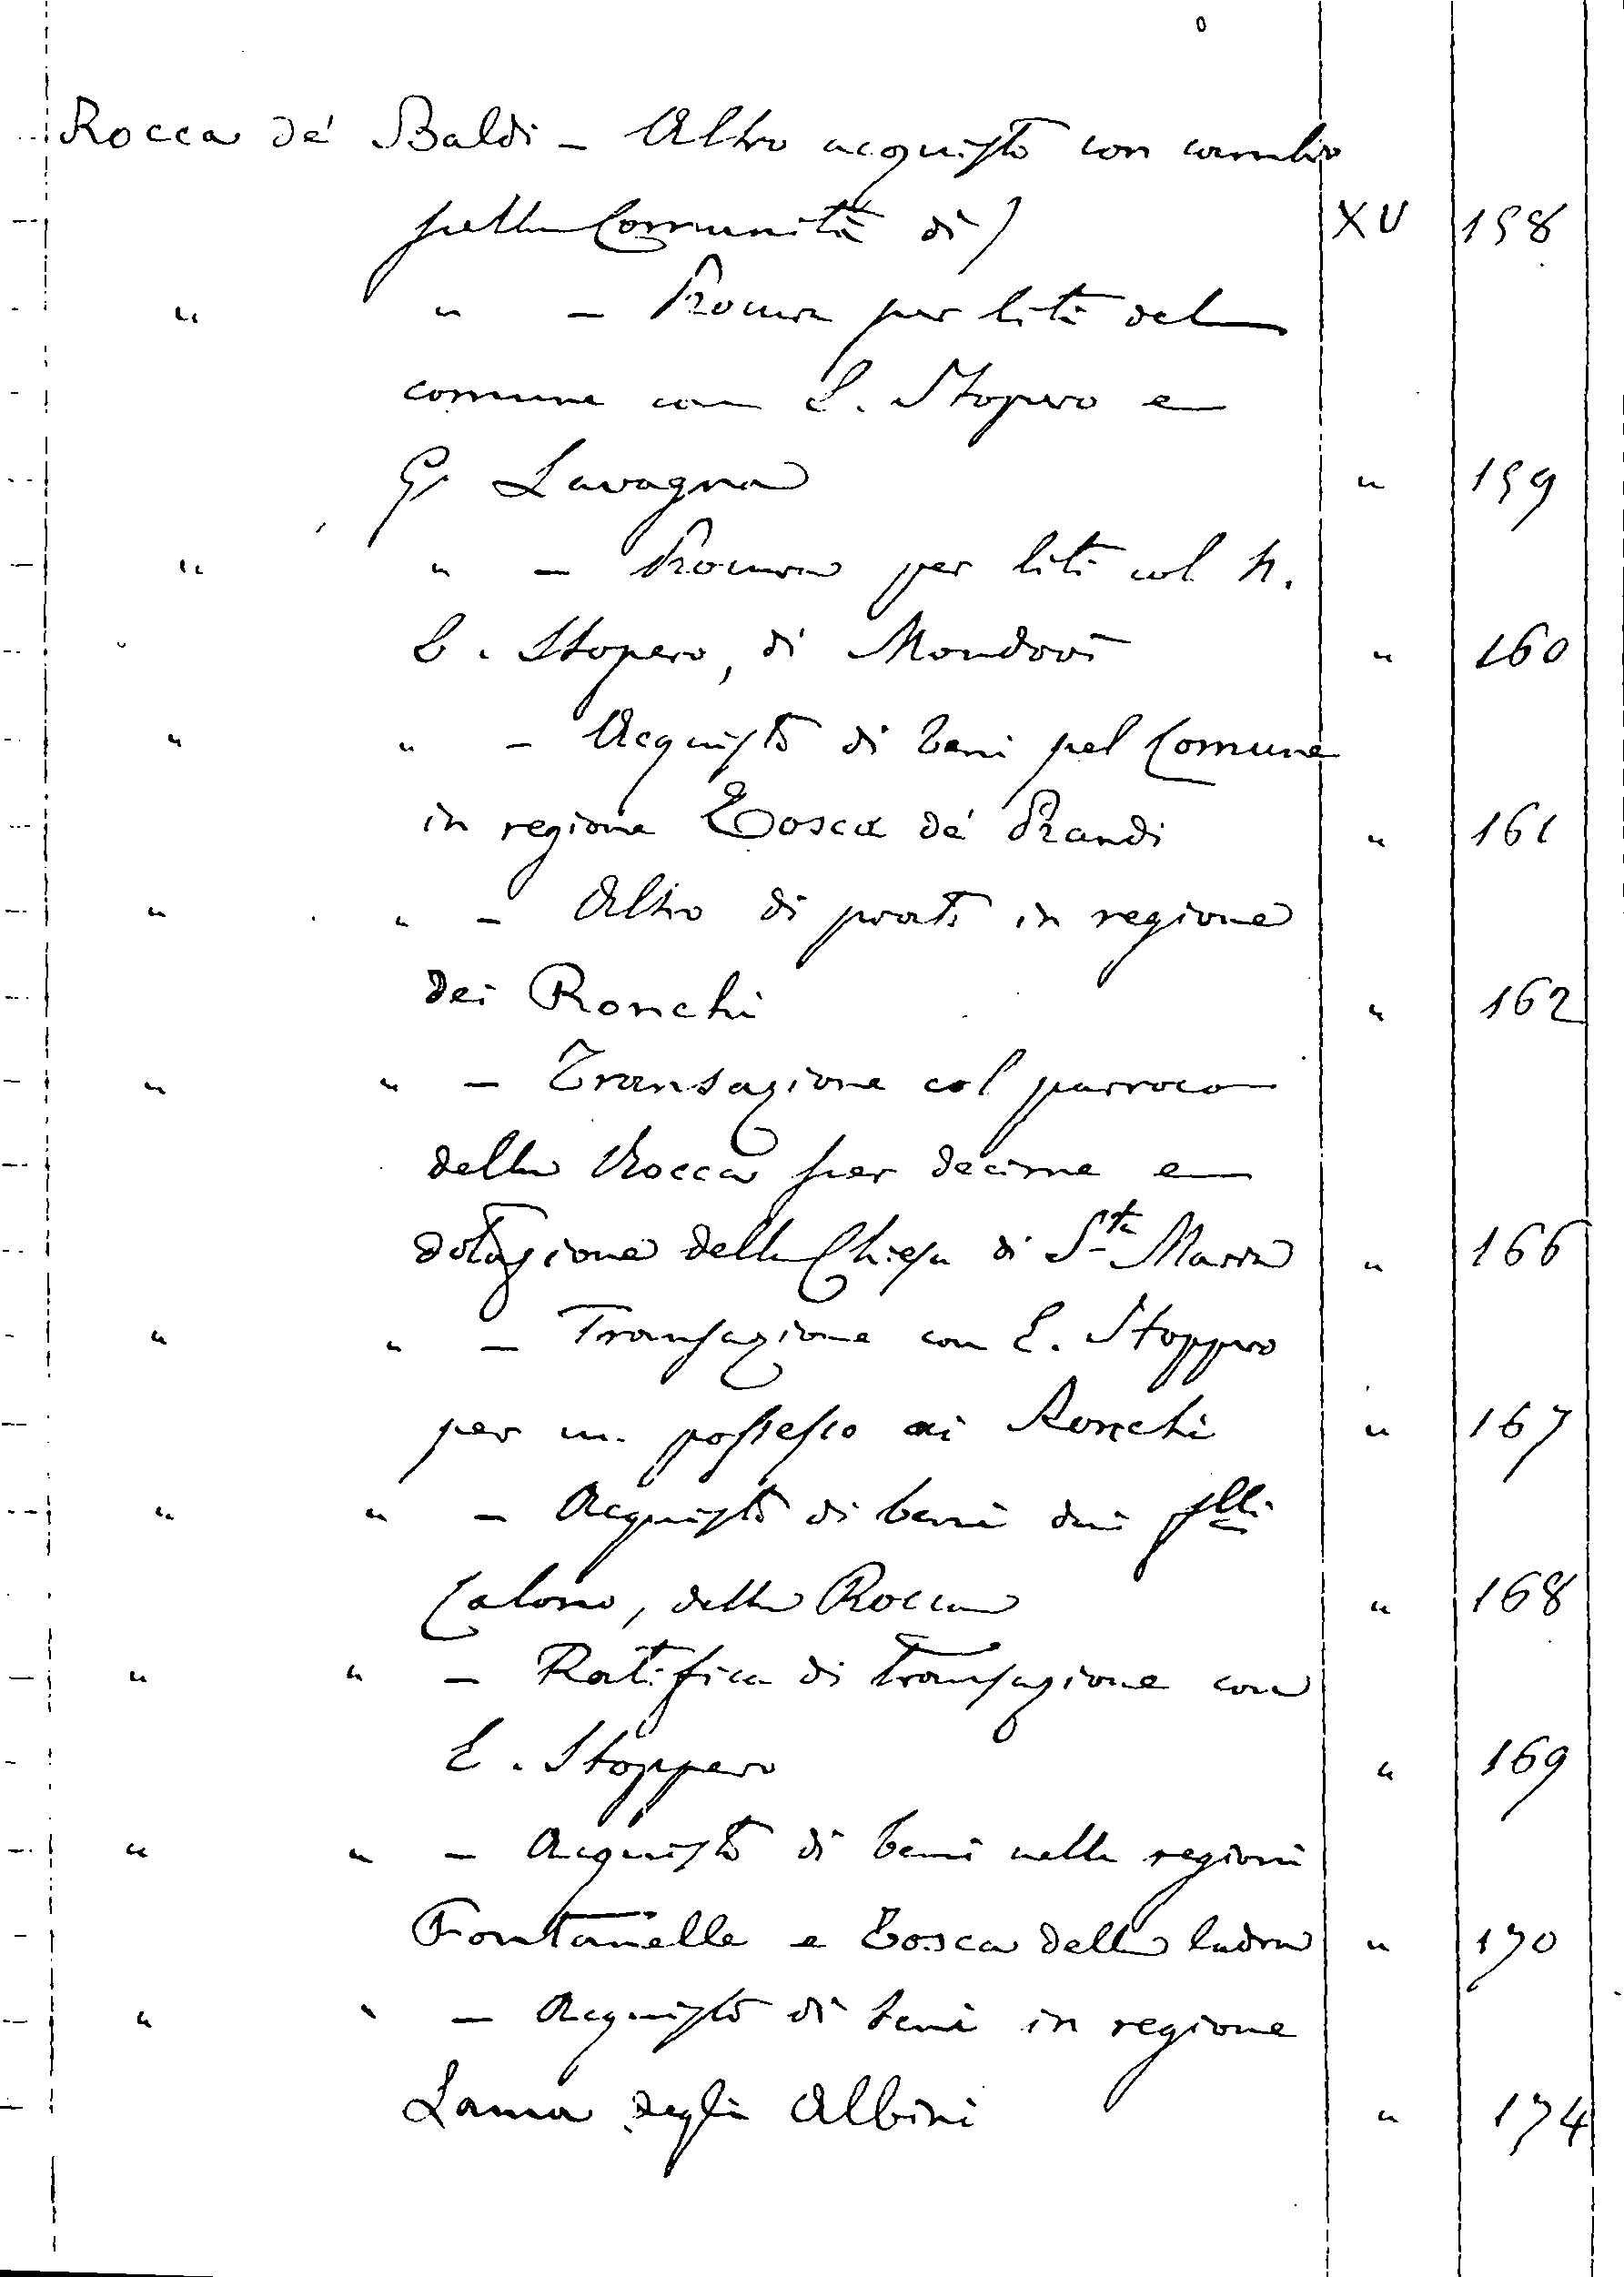 Rocca de' Baldi - Altro acquisto con cambio
(della Comunità di) XV 158
" " - Procura per liti del
comune con E. Stopero e
G. Lavagna " 159
" " - Procura per liti col n.
E. Stopero, di Mondovì " 160
" " - Acquisto di beni pel Comune
in regione Tosca de' Prandi " 161
" " - Altro di prati in regione
dei Ronchi " 162
" " - Transazione col parroco
della Rocca per decime e
dotazione della Chiesa di S.ta Maria " 166
" " - Transazione con E. Stoppero
per un possesso ai Ronchi " 167
" " - Acquisto di beni dai flli
, della Rocca " 168
" " - Ratifica di transazione con
E. Stoppero " 169
" " - Acquisto di beni nelle regioni
Fontanelle e Tosca della ladra " 170
" " - Acquisto di beni in regione
Lama degli Albini " 174